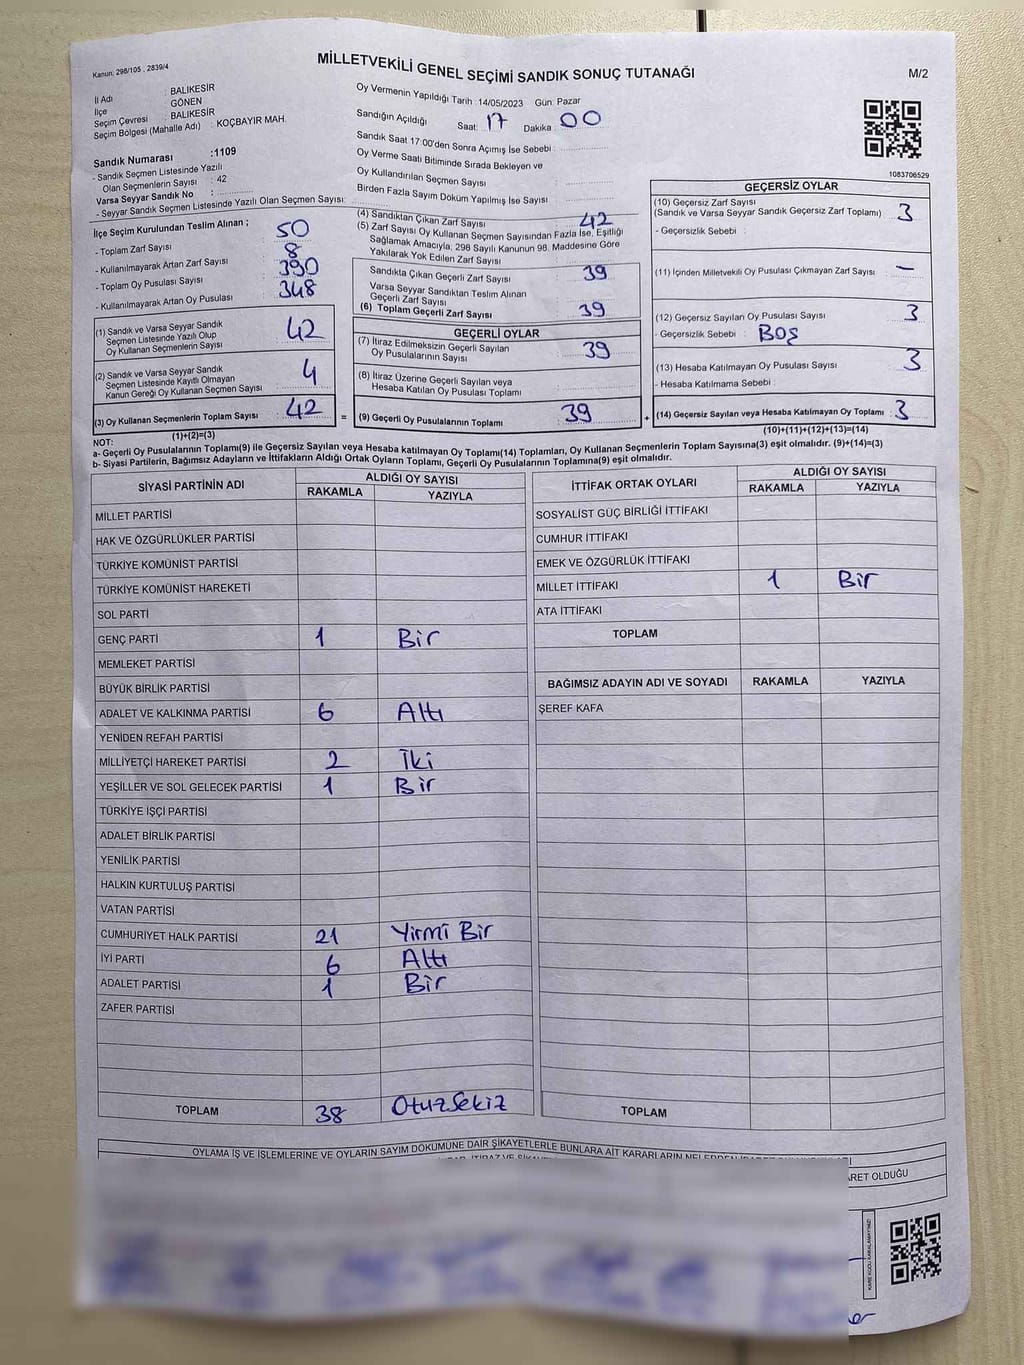 Kanun: 298/105 , 2839/4
MİLLETVEKİLİ GENEL SEÇİMİ SANDIK SONUÇ TUTANAĞI
M/2
İl Adı : BALIKESİR
İlçe : GÖNEN
Seçim Çevresi : BALIKESİR
Seçim Bölgesi (Mahalle Adı) : KOÇBAYIR MAH.
Sandık Numarası :1109
- Sandık Seçmen Listesinde Yazılı
Olan Seçmenlerin Sayısı : 42
Varsa Seyyar Sandık No :
- Seyyar Sandık Seçmen Listesinde Yazılı Olan Seçmen Sayısı:
Oy Vermenin Yapıldığı Tarih :14/05/2023 Gün: Pazar
Sandığın Açıldığı Saat: 17 Dakika : 00
Sandık Saat 17:00'den Sonra Açımış İse Sebebi :
Oy Verme Saati Bitiminde Sırada Bekleyen ve
Oy Kullandırılan Seçmen Sayısı :
Birden Fazla Sayım Döküm Yapılmış İse Sayısı :
1083706529
İlçe Seçim Kurulundan Teslim Alınan ;
- Toplam Zarf Sayısı : 50
- Kullanılmayarak Artan Zarf Sayısı : 8
- Toplam Oy Pusulası Sayısı : 390
- Kullanılmayarak Artan Oy Pusulası : 348
(1) Sandık ve Varsa Seyyar Sandık
Seçmen Listesinde Yazılı Olup
Oy Kullanan Seçmenlerin Sayısı : 42
(2) Sandık ve Varsa Seyyar Sandık
Seçmen Listesinde Kayıtlı Olmayan
Kanun Gereği Oy Kullanan Seçmen Sayısı : 4
(3) Oy Kullanan Seçmenlerin Toplam Sayısı : 42 =
(1)+(2)=(3)
(4) Sandıktan Çıkan Zarf Sayısı : 42
(5) Zarf Sayısı Oy Kullanan Seçmen Sayısından Fazla İse, Eşitliği
Sağlamak Amacıyla, 298 Sayılı Kanunun 98. Maddesine Göre
Yakılarak Yok Edilen Zarf Sayısı :
Sandıkta Çıkan Geçerli Zarf Sayısı : 39
Varsa Seyyar Sandıktan Teslim Alınan
Geçerli Zarf Sayısı :
(6) Toplam Geçerli Zarf Sayısı : 39
GEÇERLİ OYLAR
(7) İtiraz Edilmeksizin Geçerli Sayılan
Oy Pusulalarının Sayısı : 39
(8) İtiraz Üzerine Geçerli Sayılan veya
Hesaba Katılan Oy Pusulası Toplamı :
(9) Geçerli Oy Pusulalarının Toplamı : 39 +
GEÇERSİZ OYLAR
(10) Geçersiz Zarf Sayısı
(Sandık ve Varsa Seyyar Sandık Geçersiz Zarf Toplamı) : 3
- Geçersizlik Sebebi :
(11) İçinden Milletvekili Oy Pusulası Çıkmayan Zarf Sayısı : —
(12) Geçersiz Sayılan Oy Pusulası Sayısı : 3
- Geçersizlik Sebebi : Boş
(13) Hesaba Katılmayan Oy Pusulası Sayısı : 3
- Hesaba Katılmama Sebebi :
(14) Geçersiz Sayılan veya Hesaba Katılmayan Oy Toplamı : 3
(10)+(11)+(12)+(13)=(14)
NOT:
a- Geçerli Oy Pusulalarının Toplamı(9) ile Geçersiz Sayılan veya Hesaba katılmayan Oy Toplamı(14) Toplamları, Oy Kullanan Seçmenlerin Toplam Sayısına(3) eşit olmalıdır. (9)+(14)=(3)
b- Siyasi Partilerin, Bağımsız Adayların ve İttifakların Aldığı Ortak Oyların Toplamı, Geçerli Oy Pusulalarının Toplamına(9) eşit olmalıdır.
SİYASİ PARTİNİN ADI ALDIĞI OY SAYISI
RAKAMLA YAZIYLA
MİLLET PARTİSİ
HAK VE ÖZGÜRLÜKLER PARTİSİ
TÜRKİYE KOMÜNİST PARTİSİ
TÜRKİYE KOMÜNİST HAREKETİ
SOL PARTİ
GENÇ PARTİ 1 Bir
MEMLEKET PARTİSİ
BÜYÜK BİRLİK PARTİSİ
ADALET VE KALKINMA PARTİSİ 6 Altı
YENİDEN REFAH PARTİSİ
MİLLİYETÇİ HAREKET PARTİSİ 2 İki
YEŞİLLER VE SOL GELECEK PARTİSİ 1 Bir
TÜRKİYE İŞÇİ PARTİSİ
ADALET BİRLİK PARTİSİ
YENİLİK PARTİSİ
HALKIN KURTULUŞ PARTİSİ
VATAN PARTİSİ
CUMHURİYET HALK PARTİSİ 21 Yirmi Bir
İYİ PARTİ 6 Altı
ADALET PARTİSİ 1 Bir
ZAFER PARTİSİ
TOPLAM 38 OtuzSekiz
İTTİFAK ORTAK OYLARI ALDIĞI OY SAYISI
RAKAMLA YAZIYLA
SOSYALİST GÜÇ BİRLİĞİ İTTİFAKI
CUMHUR İTTİFAKI
EMEK VE ÖZGÜRLÜK İTTİFAKI
MİLLET İTTİFAKI 1 Bir
ATA İTTİFAKI
TOPLAM
BAĞIMSIZ ADAYIN ADI VE SOYADI RAKAMLA YAZIYLA
ŞEREF KAFA
TOPLAM
OYLAMA İŞ VE İŞLEMLERİNE VE OYLARIN SAYIM DÖKÜMÜNE DAİR ŞİKAYETLERLE BUNLARA AİT KARARLARIN
ARET OLDUĞU